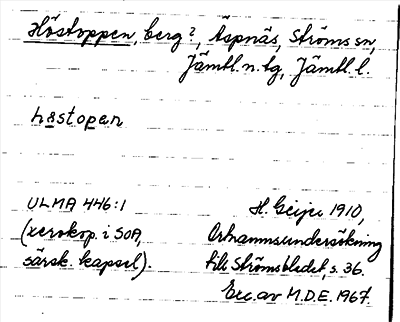 Höstoppen, berg?, Äspnäs, Ströms sn,
Jämtl. n. tg, Jämtl. l.
hästopen
ULMA 446:1
(xerokop. i SOA,
särsk. kapsel).
H. Geijer 1910,
Ortnamnsundersökning
till Strömsbladet, s. 36.
Exc. av M.D.E. 1967.